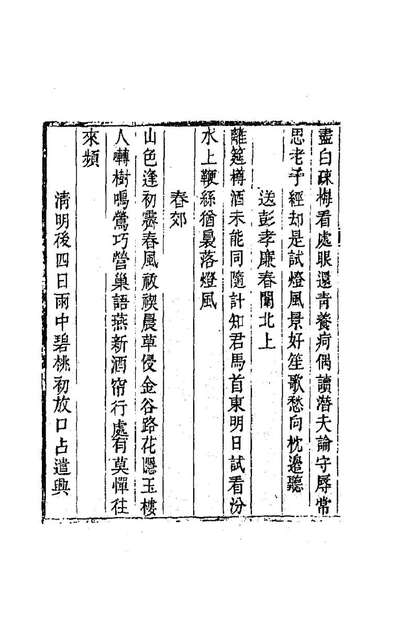 盡白疎梅看處眼還青養疴偶讀潛夫論守辱常
思老子經却是試燈風景好笙歌愁向枕邉聽
送彭孝廉春闈北上
離筵樽酒未能同隨計知君馬首東明日試看汾
水上鞭絲猶裊落燈風
春郊
山色逢初霽春風袚禊晨草侵金谷路花隱玉樓
人囀樹鳴鶯巧營巢語燕新酒帘行處有莫憚往
來頻
清明後四日雨中碧桃初放口占遣興